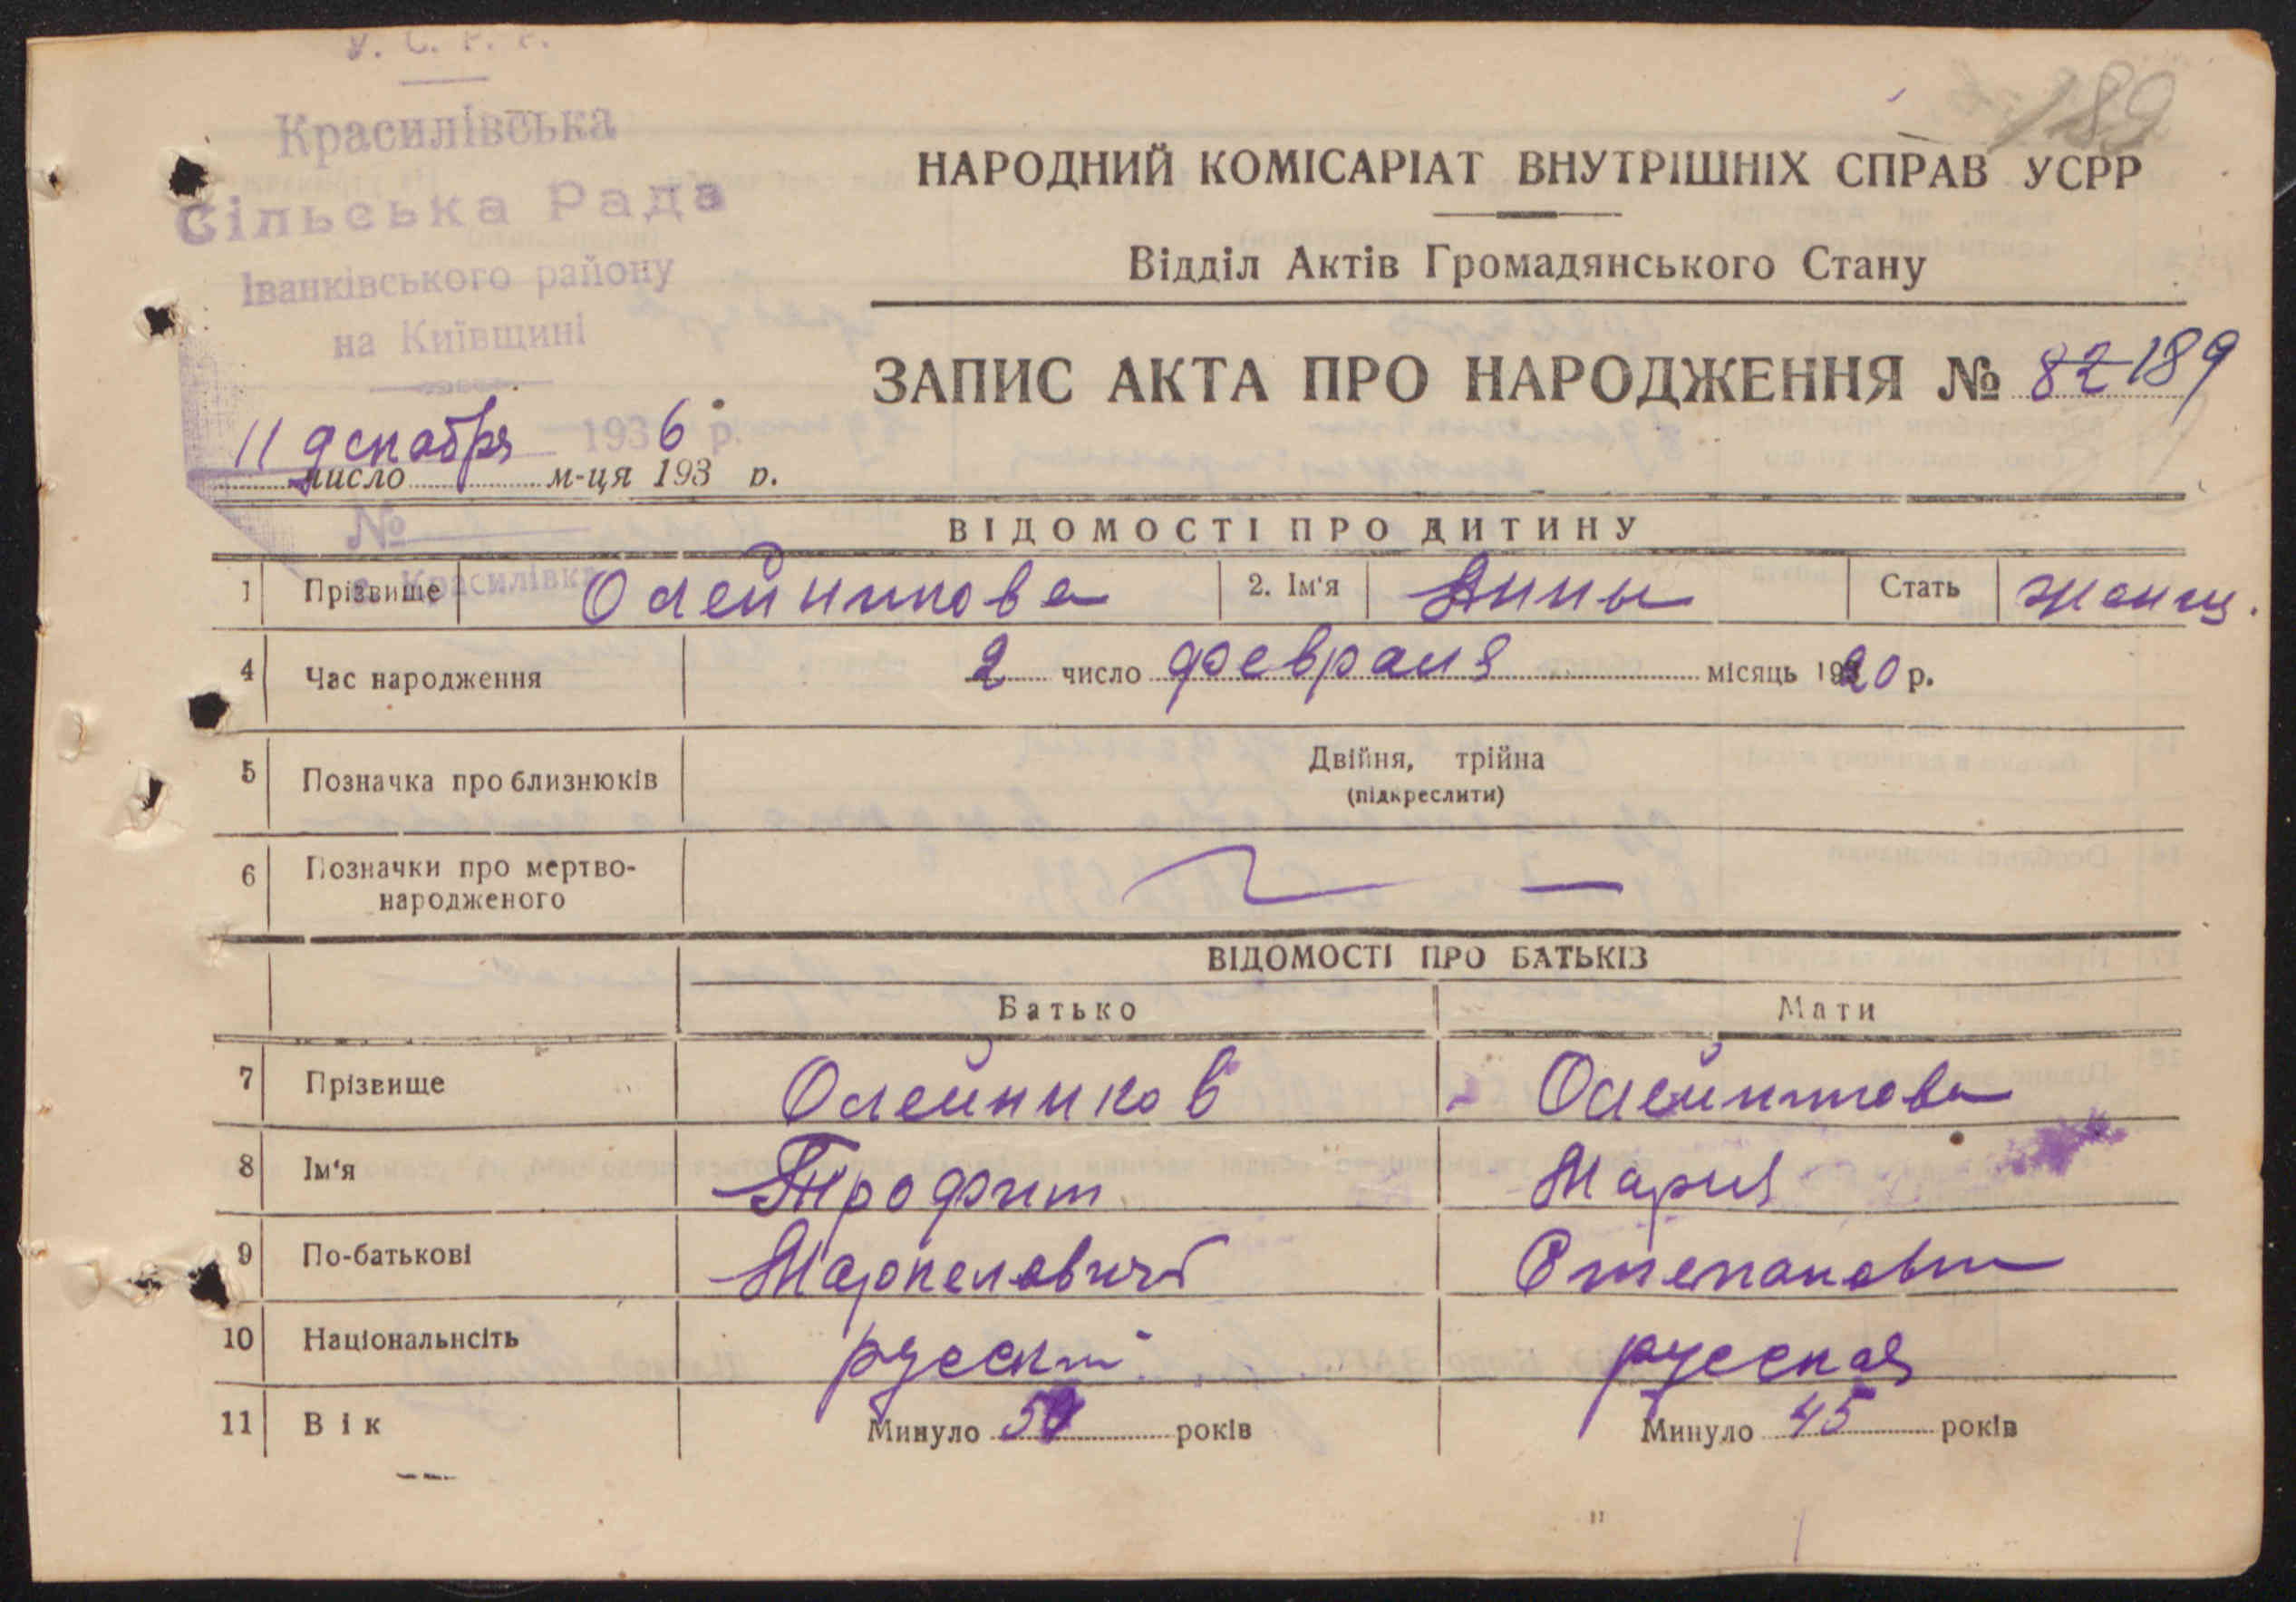 У. С. Р. Р.
Красилівська
Сільська Рада
Іванківського району
на Київщині
11 декабря 1936 р.
число м-ця 193 р.
№
с. Красилівка
189
НАРОДНИЙ КОМІСАРІАТ ВНУТРІШНІХ СПРАВ УСРР
Відділ Актів Громадянського Стану
ЗАПИС АКТА ПРО НАРОДЖЕННЯ № 82 189
ВІДОМОСТІ ПРО ДИТИНУ
1 Прізвище Олейникова 2. Ім'я Анны Стать женщ.
4 Час народження 2 число февраля місяць 1920 р.
5 Позначка про близнюків Двійня, трійна
(підкреслити)
6 Позначки про мертво-
народженого
ВІДОМОСТІ ПРО БАТЬКІВ
Батько Мати
7 Прізвище Олейников Олейникова
8 Ім'я Трофим Мария
9 По-батькові Маркелович Степановн
10 Національнсіть русский русская
11 Вік Минуло 50 років Минуло 45 років